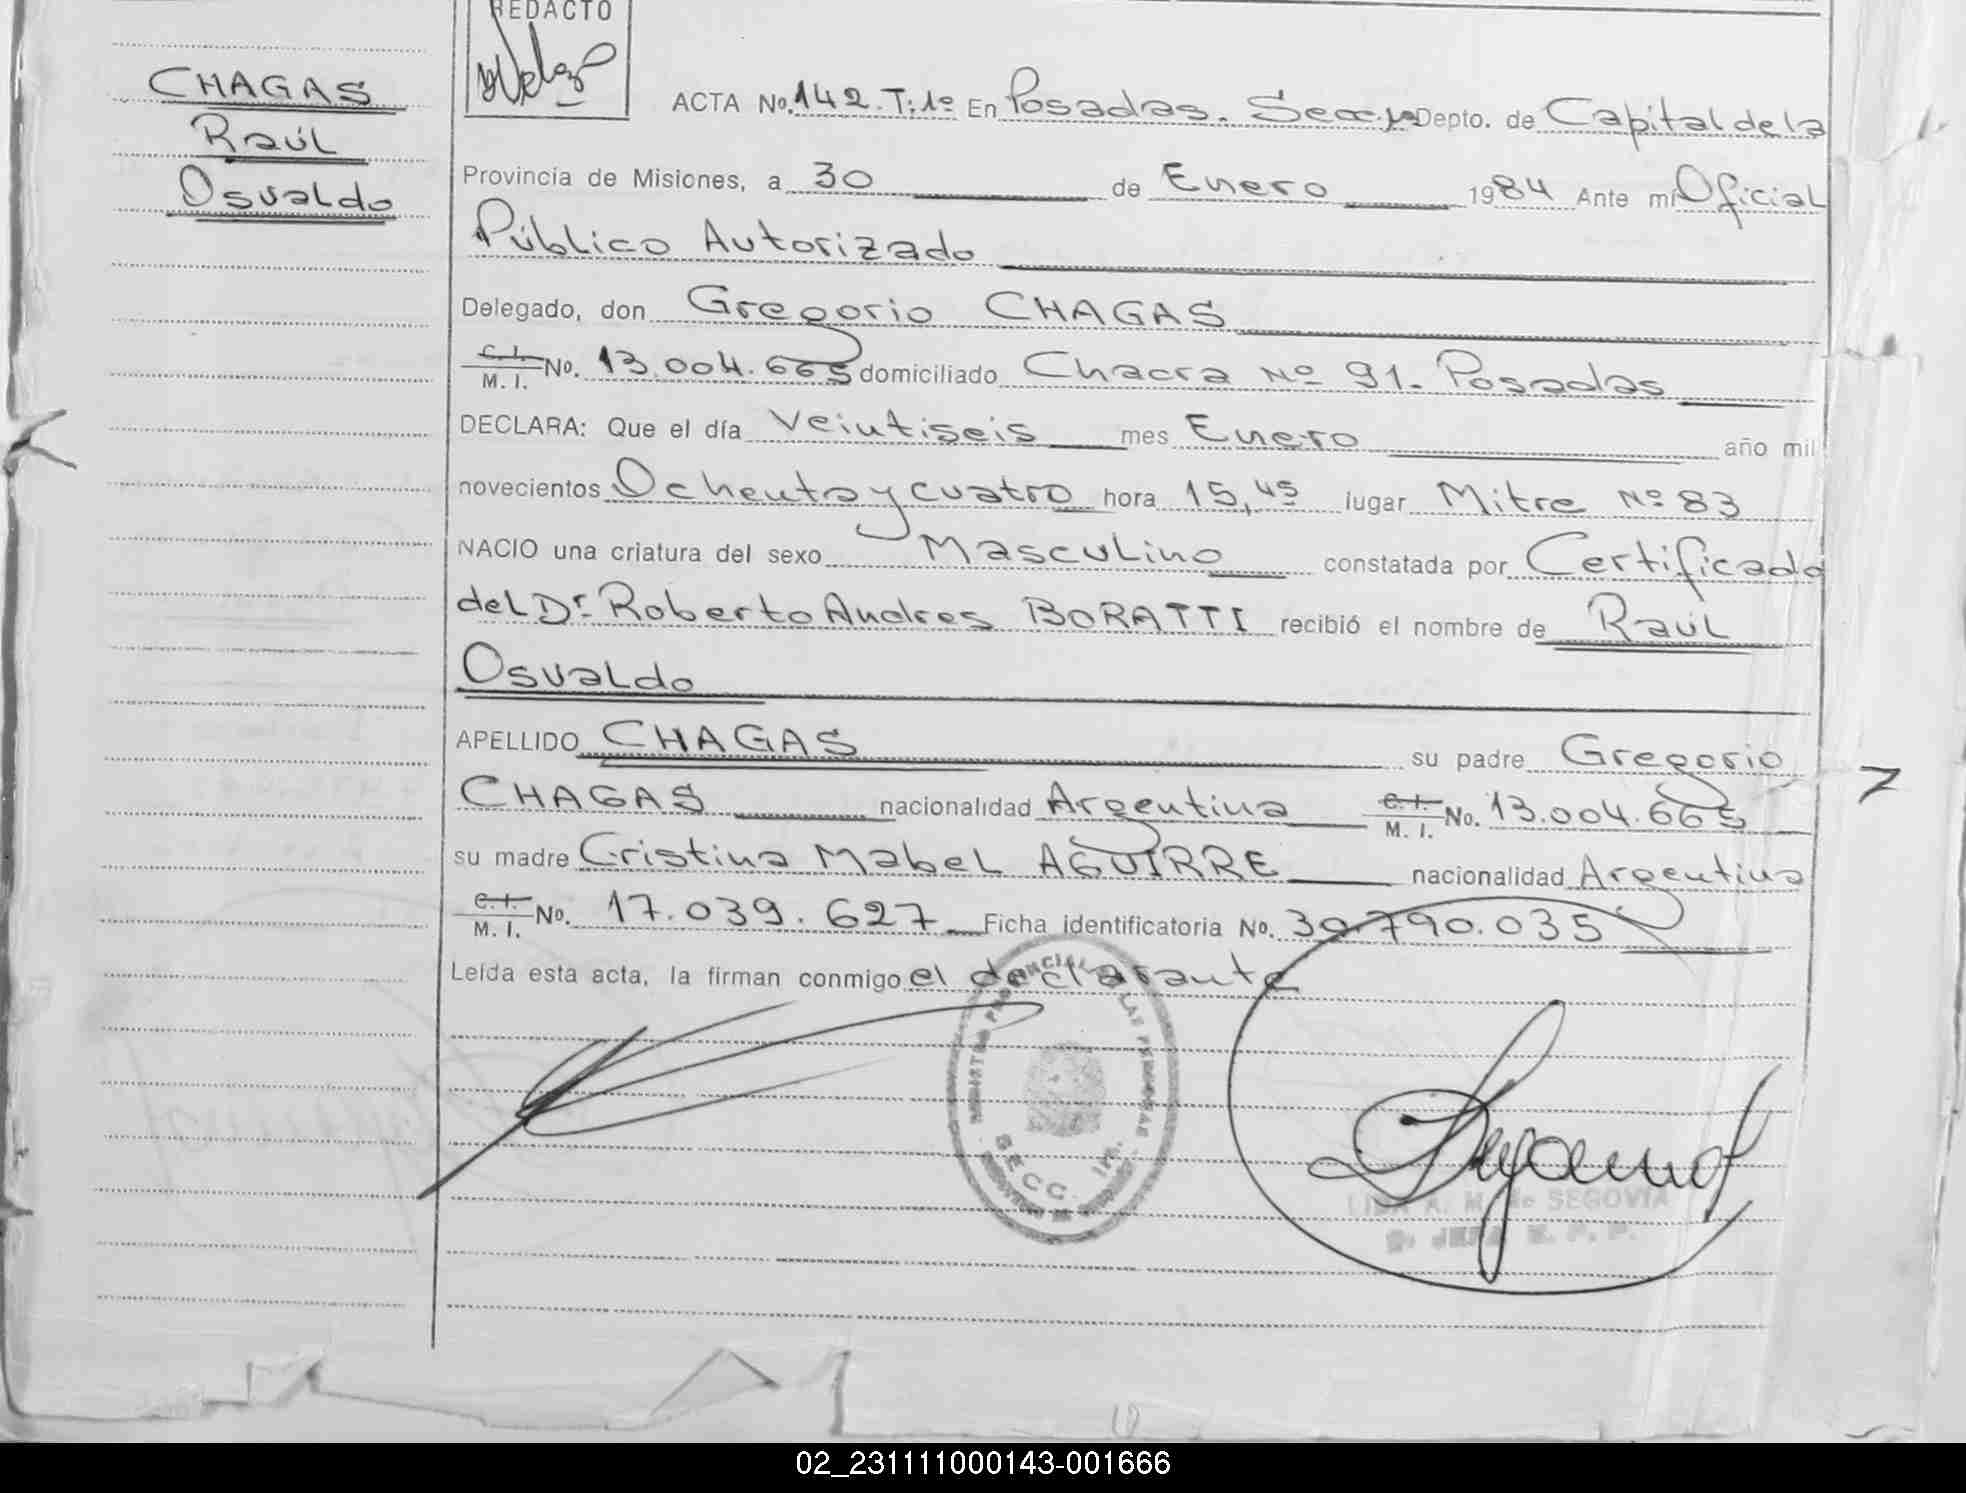 REDACTO
CHAGAS
Raúl
Osvaldo
ACTA No. 142. T: 1º En Posadas. Secc. 1ª Depto. de Capital de la
Provincia de Misiones, a 30 de Enero 1984 Ante mí Oficial
Público Autorizado
Delegado, don Gregorio CHAGAS
C. I. M. I. No. 13.004.665 domiciliado Chacra Nº 91. Posadas
DECLARA: Que el día Veintiseis mes Enero año mil
novecientos Ochenta y cuatro hora 15,45 lugar Mitre Nº 83
NACIO una criatura del sexo Masculino constatada por Certificado
del Dr. Roberto Andres BORATTI recibió el nombre de Raúl
Osvaldo
APELLIDO CHAGAS su padre Gregorio
CHAGAS nacionalidad Argentina C. I. M. I. No. 13.004.665
su madre Cristina Mabel AGUIRRE nacionalidad Argentina
C. I. M. I. No. 17.039.627 Ficha identificatoria No. 30.790.035
Leída esta acta, la firman conmigo el declarante
PROVINCIAL LAS PERSONAS
SECC. 1ra.
LIDA A. M. de SEGOVIA
JEFA
02_231111000143-001666